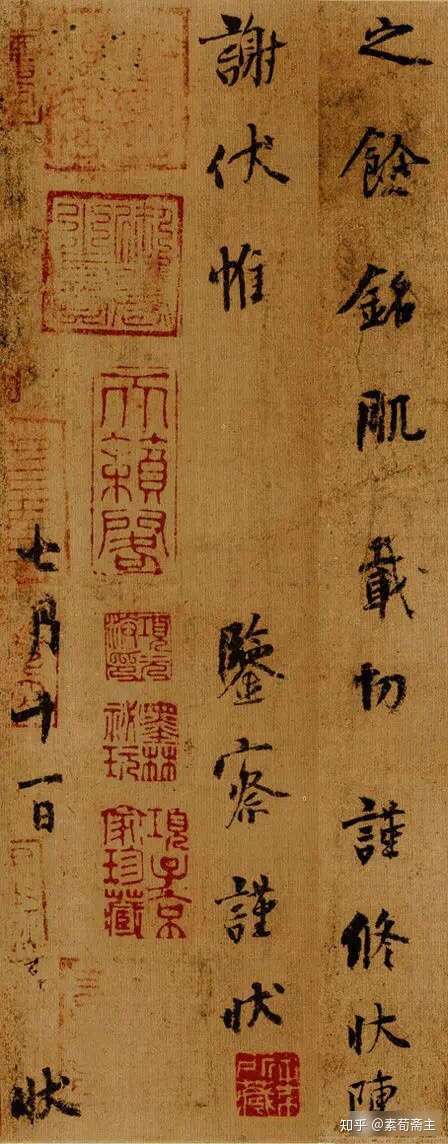 之餘銘肌載切謹修狀陳
謝伏惟鑒察謹狀
天籟閣
項元汴印
墨林祕玩
項子京家珍藏
七月十一日狀
知乎 @素荀斋主